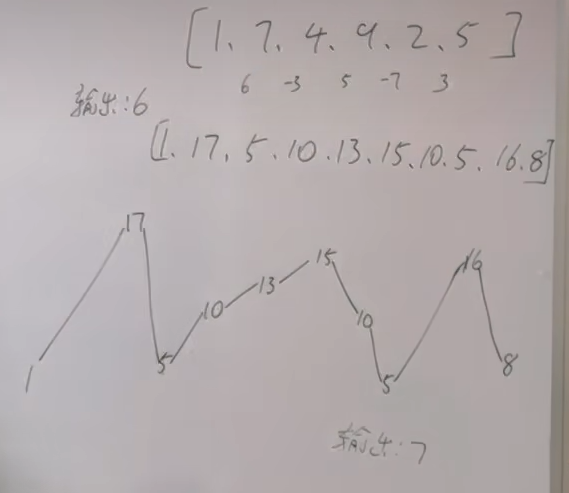 [1、7、4、9、2、5]
6 -3 5 -7 3
输出:6
[1、17、5、10、13、15、10、5、16、8]
17
15
16
13
10
10
5
5
8
1
输出:7